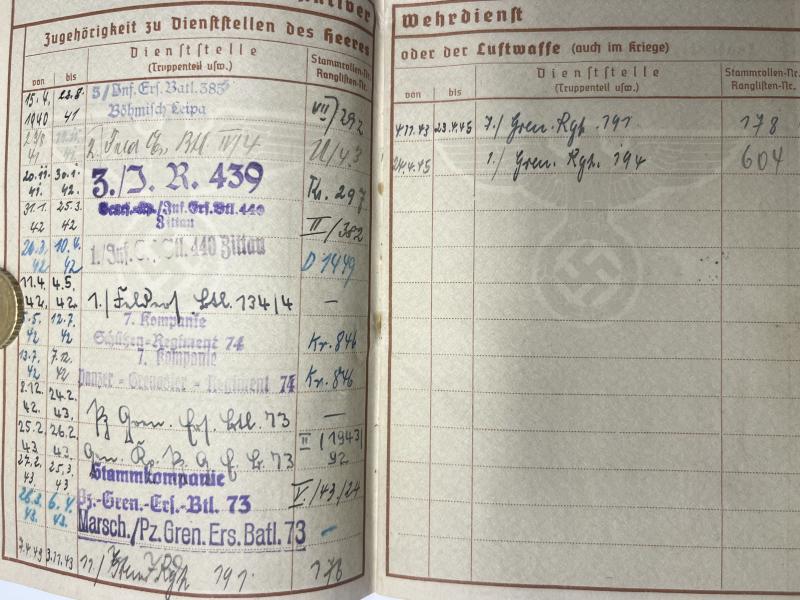 Zugehörigkeit zu Dienststellen des Heeres
Dienststelle
(Truppenteil usw.)
Stammrollen-Nr.
Ranglisten-Nr.
von bis
15.4. 1940 22.8. 41 3/Inf. Ers. Batl. 383 Böhmisch Leipa VII/292
41 42 2. Feld IV/4
20.11. 41. 30.1. 42. 3./J. R. 439 Kr. 297
31.1. 42 25.3. 42 /Inf. Ers. Btl. 440 Zittau II/382
42 10.4. 42 1./Inf. 440 Zittau D 1449
11.4. 42. 4.5. 42. 1./Feld 134/4 —
5.5. 42 12.7. 42 7. Kompanie Schützen-Regiment 74 Kr. 846
13.7. 42 7.12. 42 7. Kompanie Panzer-Grenadier-Regiment 74 Kr. 846
8.12. 42. 24.2. 43. Gren. Ers. Btl. 73 —
25.2. 43. 26.2. 43. 73 II/1943/92
27.2. 43 25.3. 43 Stammkompanie Pz.-Gren.-Ers.-Btl. 73 V./43/24
43. 6.4. 43. Marsch./Pz. Gren. Ers. Batl. 73 —
7.4.43 3.11.43 11./ 191. 176
Wehrdienst
oder der Luftwaffe (auch im Kriege)
Dienststelle
(Truppenteil usw.)
Stammrollen-Nr.
Ranglisten-Nr.
von bis
4.11.43 23.4.45 7./Gren. Rgt. 191 178
24.4.45 1./Gren. Rgt. 194 604